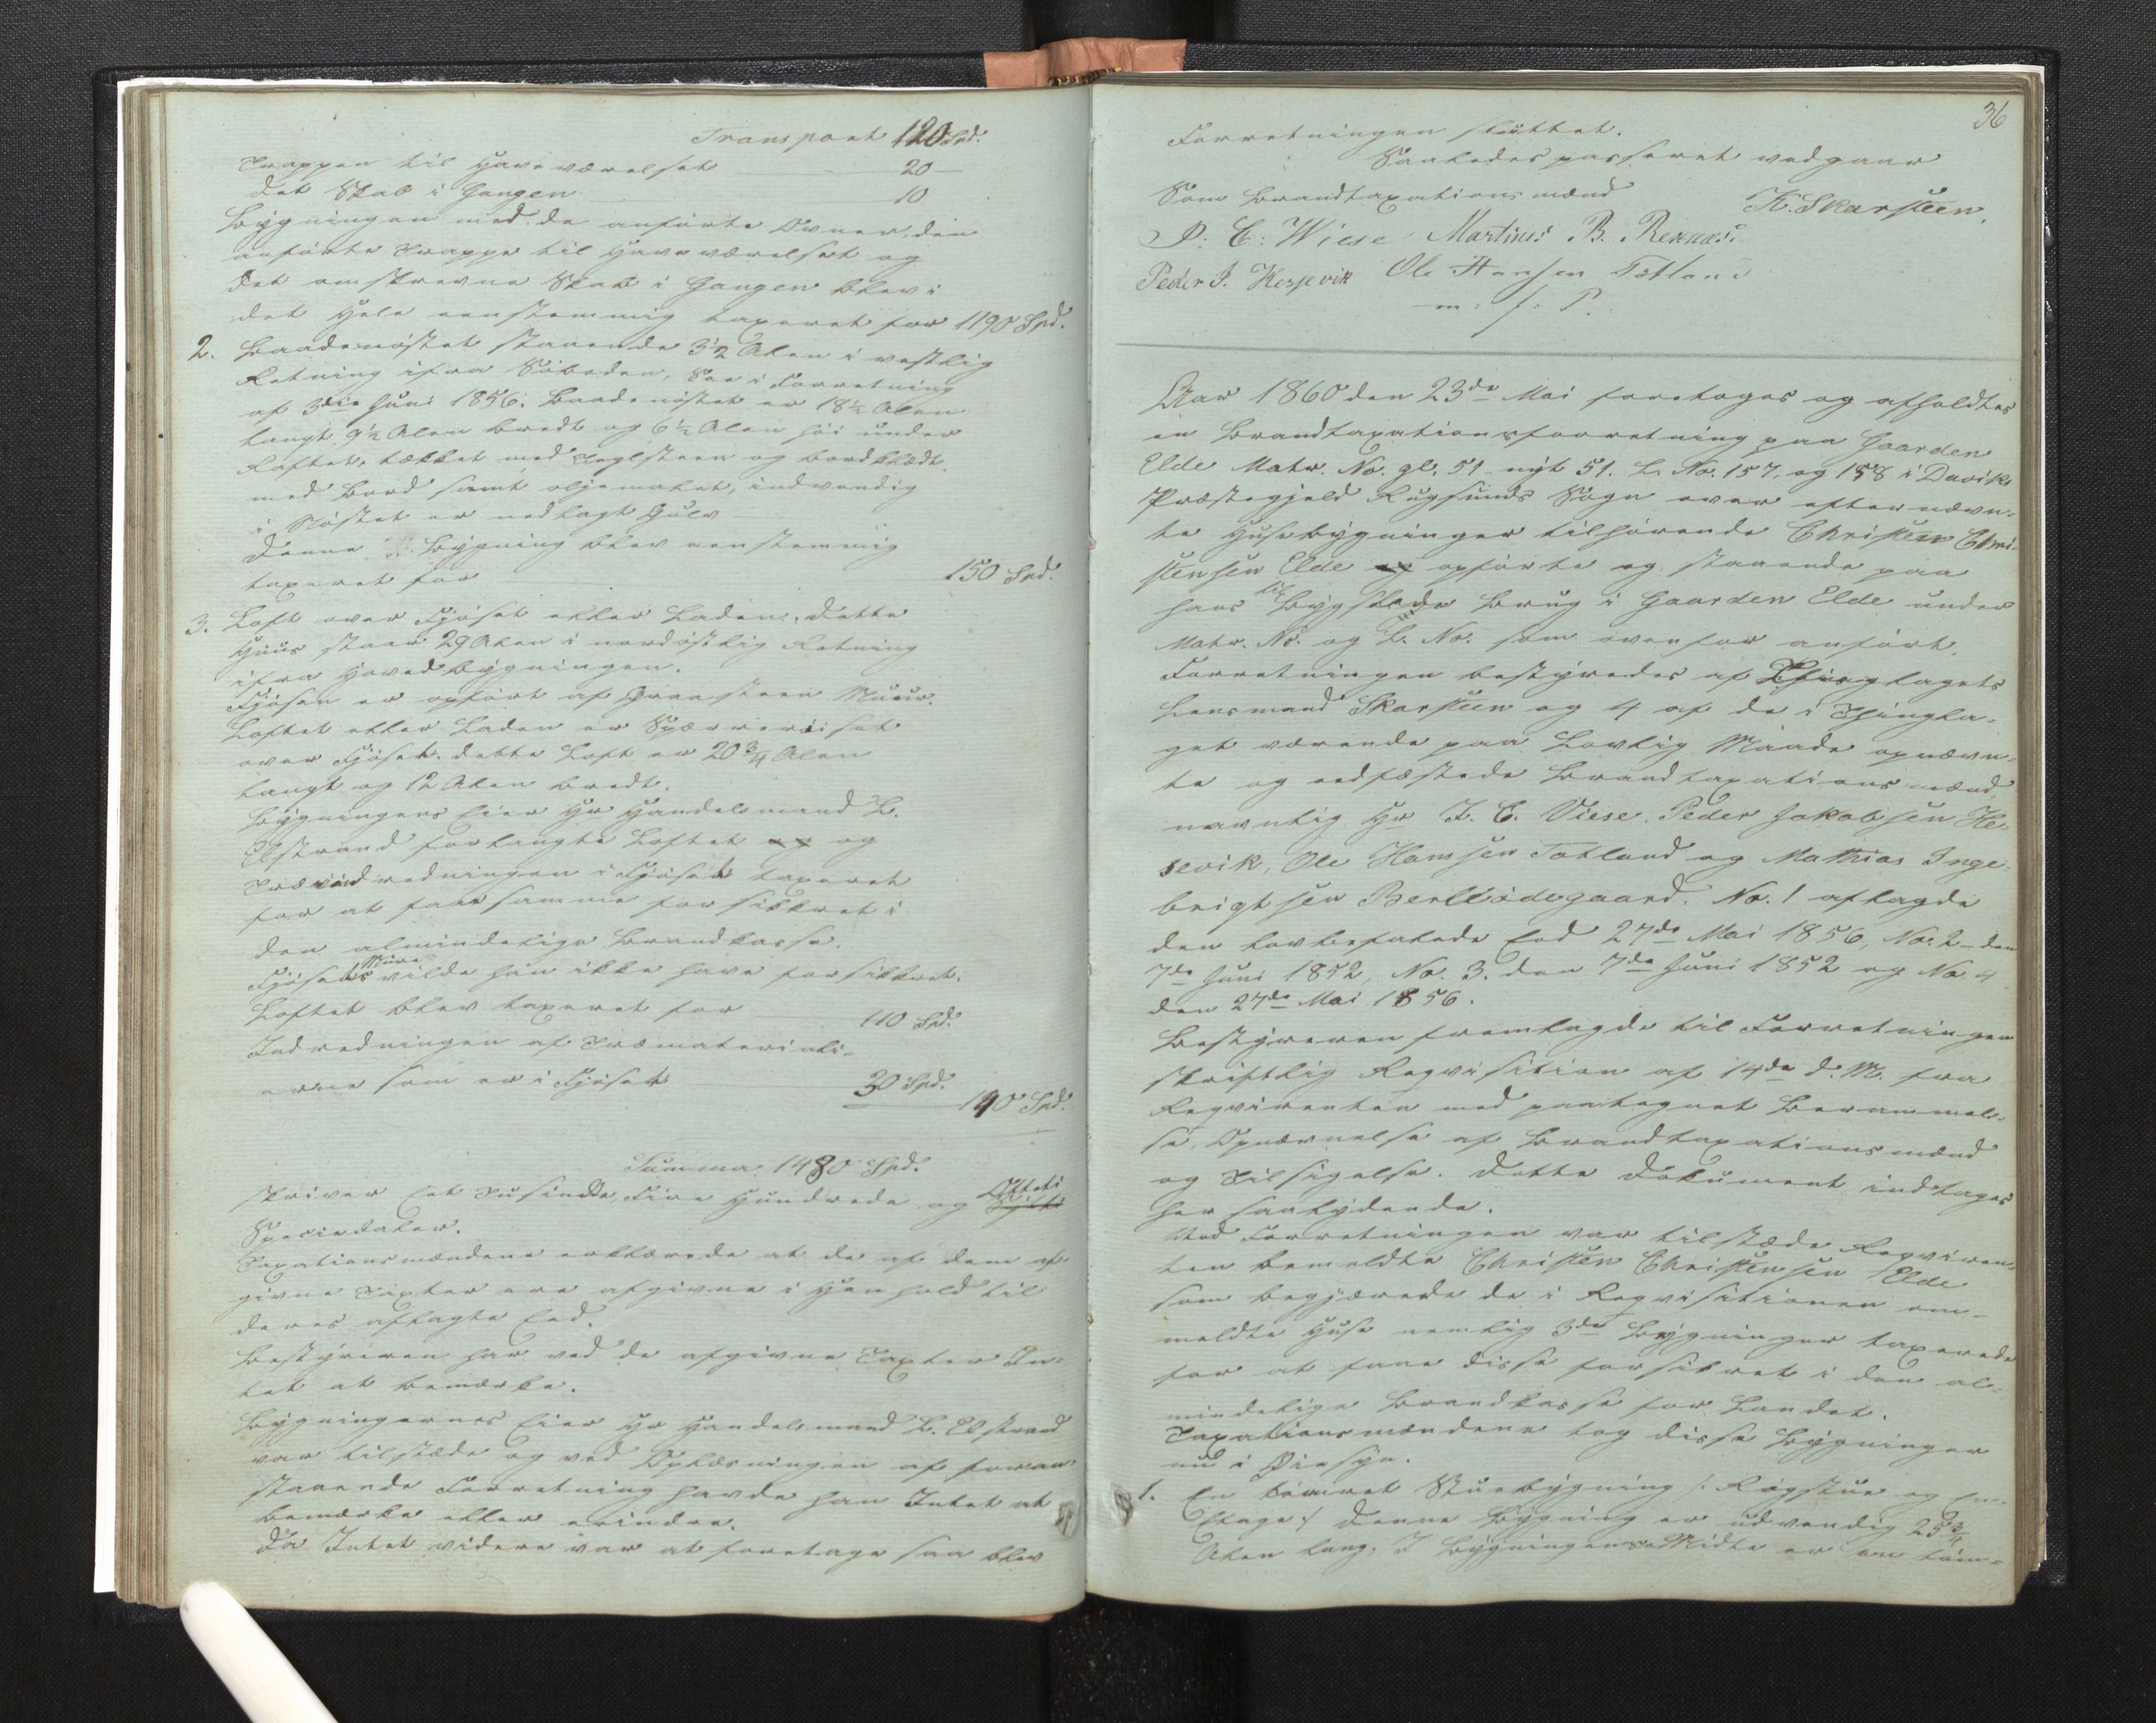 Transport 120 Spd.
Trappen til Haveværelset 20 —
det Skab i Gangen 10
Bygningen med de anførte Ovner, den
anførte Trappe til Haveværelset og
det omskrevne Skab i Gangen blev i
det Hele eenstemmig taxeret for 1190 Spd.
2. Baadenøstet staaende 3½ Alen i vestlig
Retning ifra Søboden, See i Forretning
af 3die Juni 1856. Baadenøstet er 18½ Alen
langt, 9½ Alen bredt og 6½ Alen høi under
Raftet, tækket med Teglsteen og bordklædt
med Bord samt oljemalet, indvendig
i Nøstet er nedlagt Gulv
Denne Bygning blev eenstemmig
taxeret for 150 Spd.
3. Loft over Fjøset eller Laden, dette
Huus staar 29 Alen i nordøstlig Retning
ifra Hovedbygningen.
Fjøsen er opført af Graasteen Muur.
Loftet eller Laden er Spærrereiset
over Fjøset. dette Loft er 20¾ Alen
langt og 12 Alen bredt.
Bygningens Eier Hr Handelsmand L.
Elstrand forlangte Loftet og
Træindredningen i Fjøset taxeret
for at faae samme forsikkret i
den almindelige Brandkasse.
Fjøsets Mure vilde han ikke have forsikkret.
Loftet blev taxeret for 110 Spd.
Indredningen af Træmateriali-
erne som er i Fjøset 30 Spd.
140 Spd.
Summa 1480 Spd.
skriver Eet Tusinde Fire Hundrede og Otteti
Speciedaler.
Taxationsmændene erklærede at de af dem af-
givne Taxter ere afgivne i Henhold til
deres aflagte Eed.
Bestyreren har ved de afgivne Taxter In-
tet at bemærke.
Bygningernes Eier Hr Handelsmand L. Elstrand
var tilstæde og ved Oplæsningen af foran-
staaende Forretning havde han Intet at
bemærke eller erindre.
Da Intet videre var at foretage saa blev
36
Forretningen sluttet.
Saaledes passeret vedgaar
Som Brandtaxationsmænd K. Skarsteen.
P. C. Wiese Martinus B. Rexnæs.
Peder J. Hessevik Ole Hansen Totland
m. f. P.
Aar 1860 den 23de Mai foretoges og afholdtes
en Brandtaxationsforretning paa Gaarden
Elde Matr. No. gl. 51 nyt 51. L. No. 157. og 158 i Daviks
Præstegjeld Rugsunds Sogn over efternævn-
te Husebygninger tilhørende Christen Chri-
stensen Elde opførte og staaende paa
hans Brug i Gaarden Elde under
Matr. No. og L. No. som ovenfor anført.
Forretningen bestyredes af Thinglagets
Lensmand Skarsteen og 4 af de i Thingla-
get værende paa Lovlig Maade opnævn-
te og edfæstede Brandtaxationsmænd
navnlig Hr J. C. Wiese. Peder Jakobsen He-
sevik, Ole Hanssen Totland og Mathias Inge-
brigtsen Berlleødegaard. No. 1 aflagde
den lovbefalede Eed 27de Mai 1856, No. 2 den
7de Juni 1852, No. 3. den 7de Juni 1852 og No. 4
den 27de Mai 1856.
Bestyreren fremlagde til Forretningen
skriftlig Reqvisition af 14de d. M. fra
Reqvirenten med paategnet Berammel-
se, Opnævnelse af Brandtaxationsmænd
og Tilsigelse. Dette Dokument indtages
her saalydende.
Ved Forretningen var tilstæde Reqviren-
ten bemeldte Christen Christensen Elde
som begjærede de i Reqvisitionen om-
meldte Huse nemlig 3de Bygninger taxerede
for at faae disse forsikret i den al-
mindelige Brandkasse for Landet.
Taxationsmændene tog disse Bygninger
nu i Øiesyn.
1. En tømret Stuebygning /: Røgstue og En-
Etage :/ Denne Bygning er udvendig 25¾
Alen lang. I Bygningens Midte er en tøm-